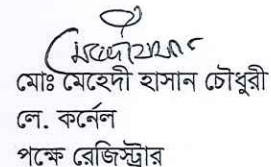 মোঃ মেহেদী হাসান চৌধুরী
লে. কর্নেল
পক্ষে রেজিস্ট্রার